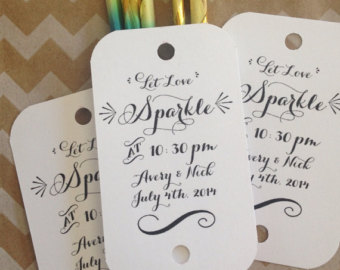 Let Love
Sparkle
AT 10:30 pm
Avery & Nick
July 4th, 2014
Let Love
Sparkle
AT 10:30 pm
Avery & Nick
July 4th, 2014